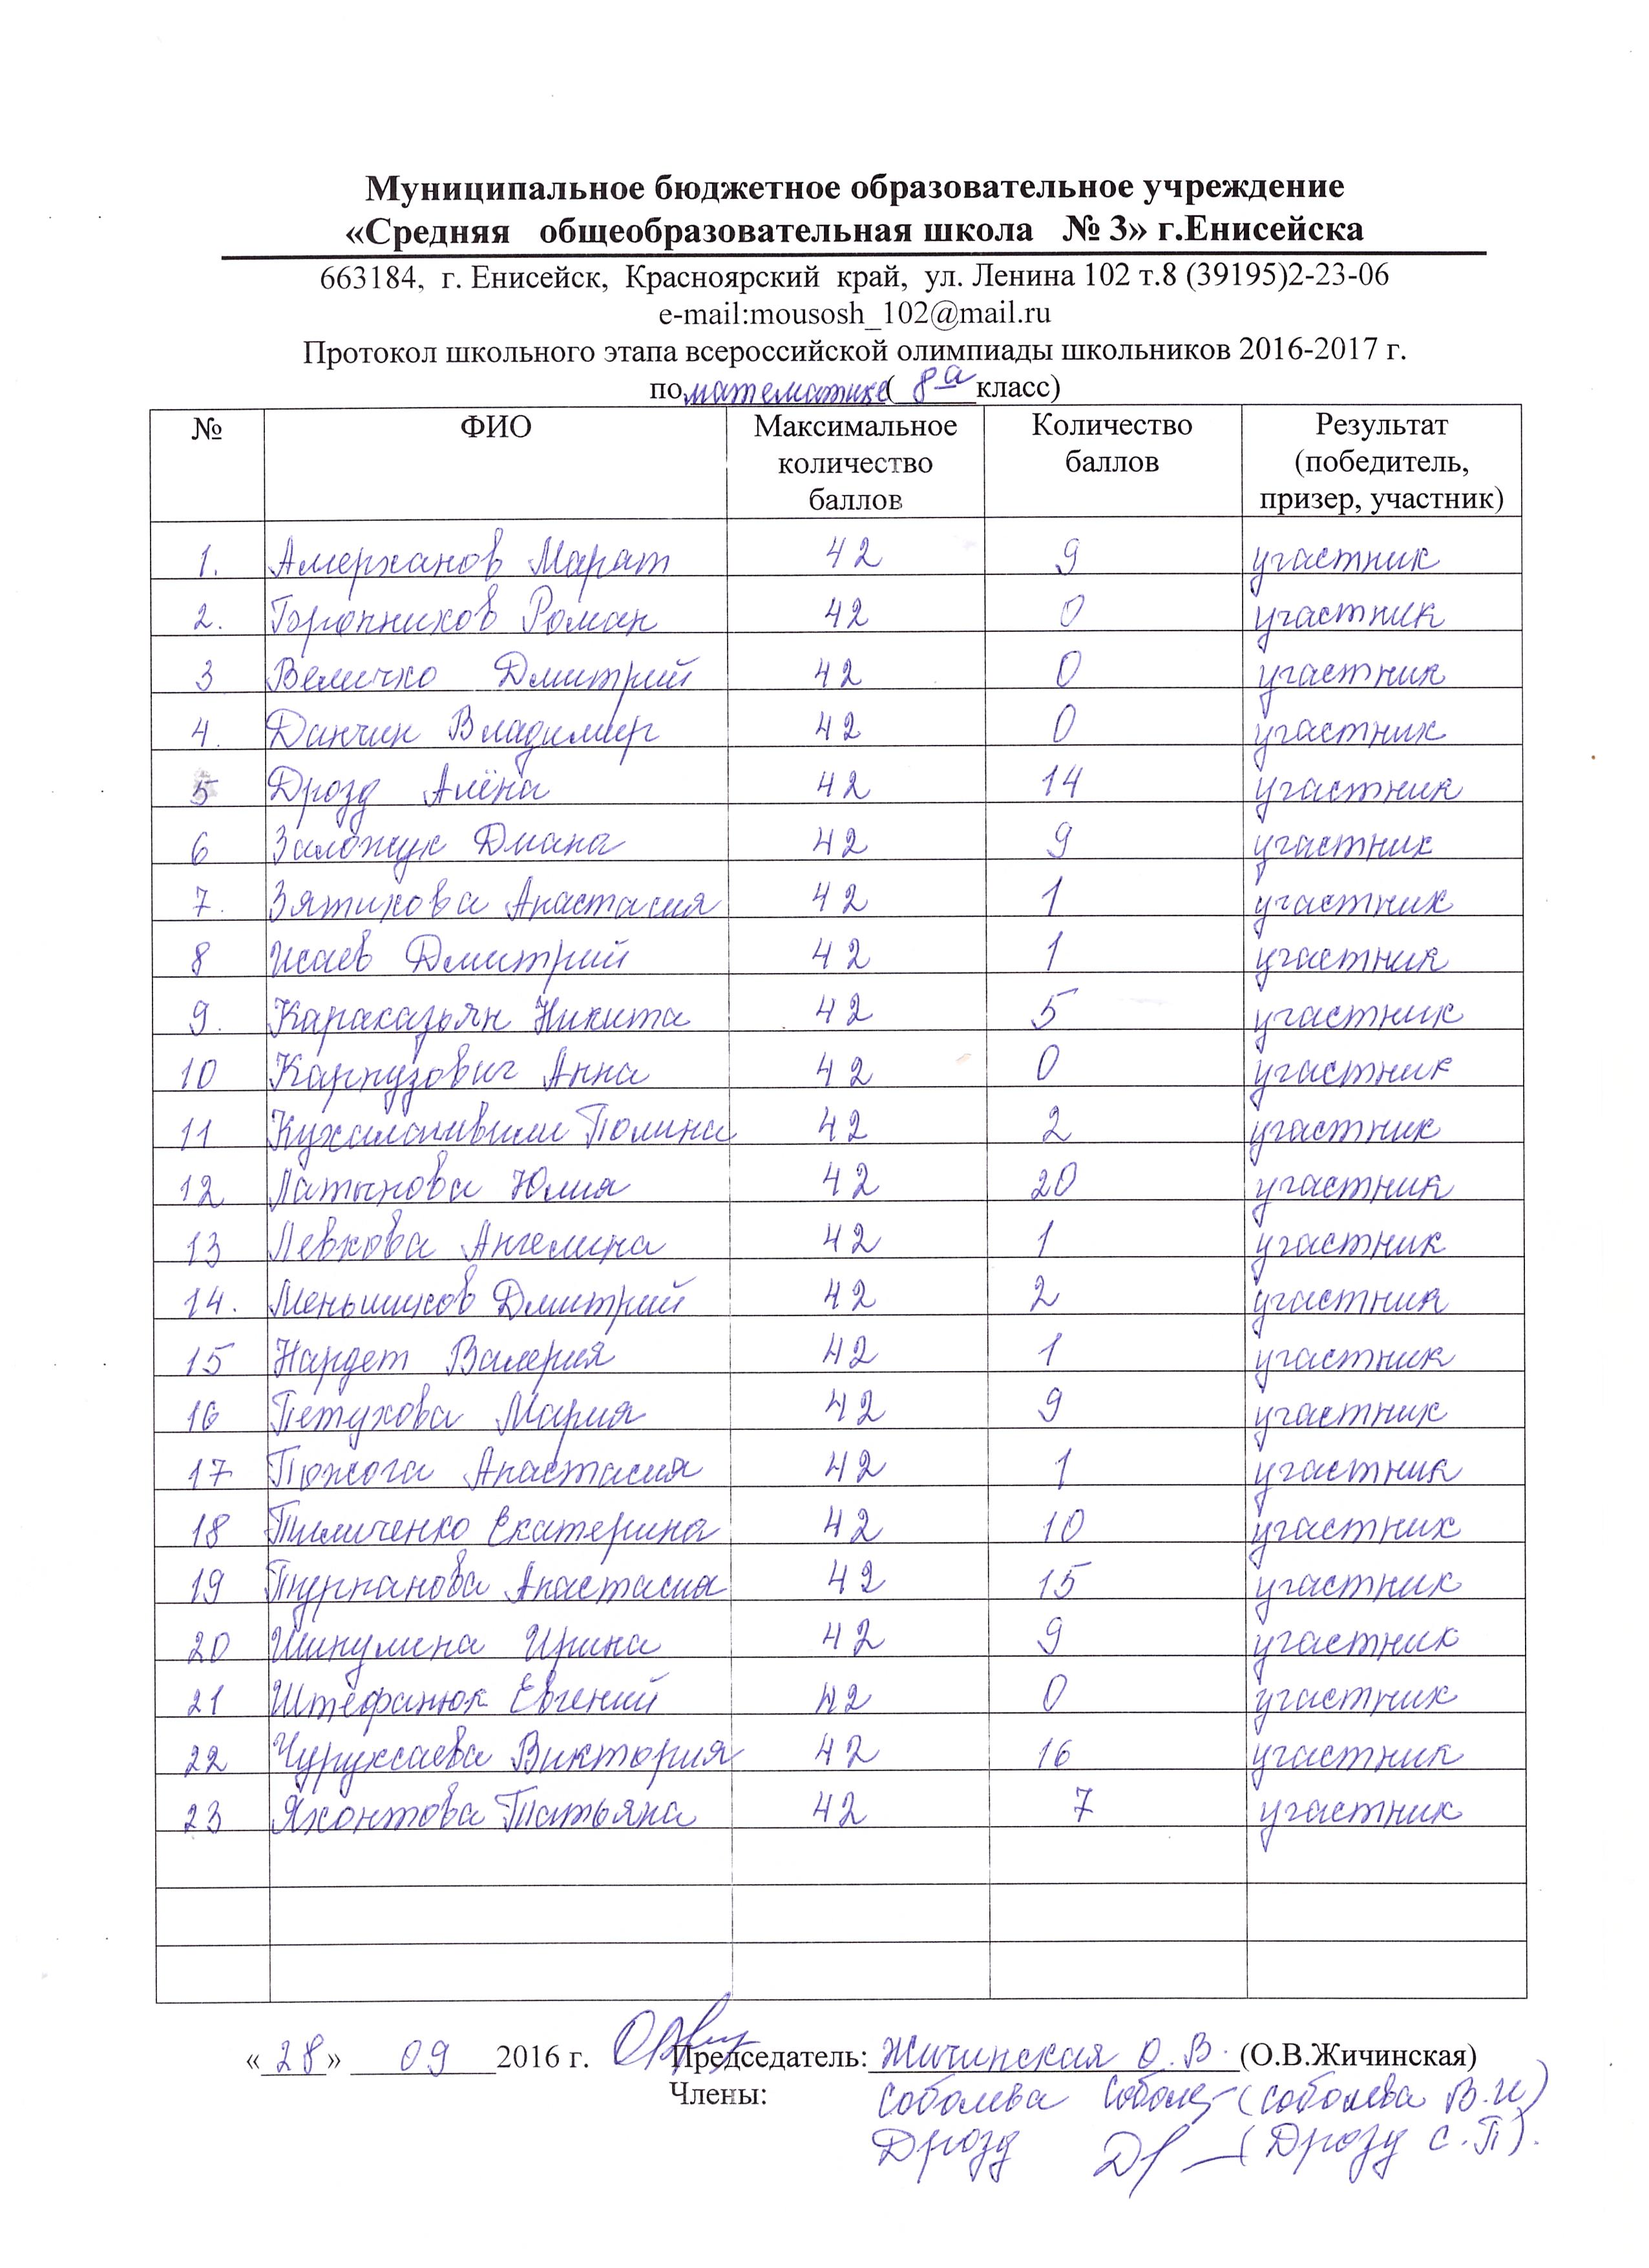 Муниципальное бюджетное образовательное учреждение
«Средняя общеобразовательная школа № 3» г.Енисейска
663184, г. Енисейск, Красноярский край, ул. Ленина 102 т.8 (39195)2-23-06
e-mail:mousosh_102@mail.ru
Протокол школьного этапа всероссийской олимпиады школьников 2016-2017 г.
по математике( 8а класс)
№ ФИО Максимальное количество баллов Количество баллов Результат (победитель, призер, участник)
1. Амерханов Марат 42 9 участник
2. Роман 42 0 участник
3 Величко Дмитрий 42 0 участник
4. Данчин Владимир 42 0 участник
5 Дрозд Алёна 42 14 участник
6 Заложук Диана 42 9 участник
7. Зятикова Анастасия 42 1 участник
8 Исаев Дмитрий 42 1 участник
9. Караказьян Никита 42 5 участник
10 Карпузович Анна 42 0 участник
11 Полина 42 2 участник
12 Латынова Юлия 42 20 участник
13 Левкова Ангелина 42 1 участник
14. Меньшиков Дмитрий 42 2 участник
15 Нардет Валерия 42 1 участник
16 Петухова Мария 42 9 участник
17 Пожога Анастасия 42 1 участник
18 Тиличенко Екатерина 42 10 участник
19 Турпанова Анастасия 42 15 участник
20 Шинулина Ирина 42 9 участник
21 Штефанюк Евгений 42 0 участник
22 Чуруксаева Виктория 42 16 участник
23 Яхонтова Татьяна 42 7 участник
«28» 09 2016 г. Председатель: Жичинская О.В. (О.В.Жичинская)
Члены: Соболева (Соболева В.И)
Дрозд (Дрозд С.П).